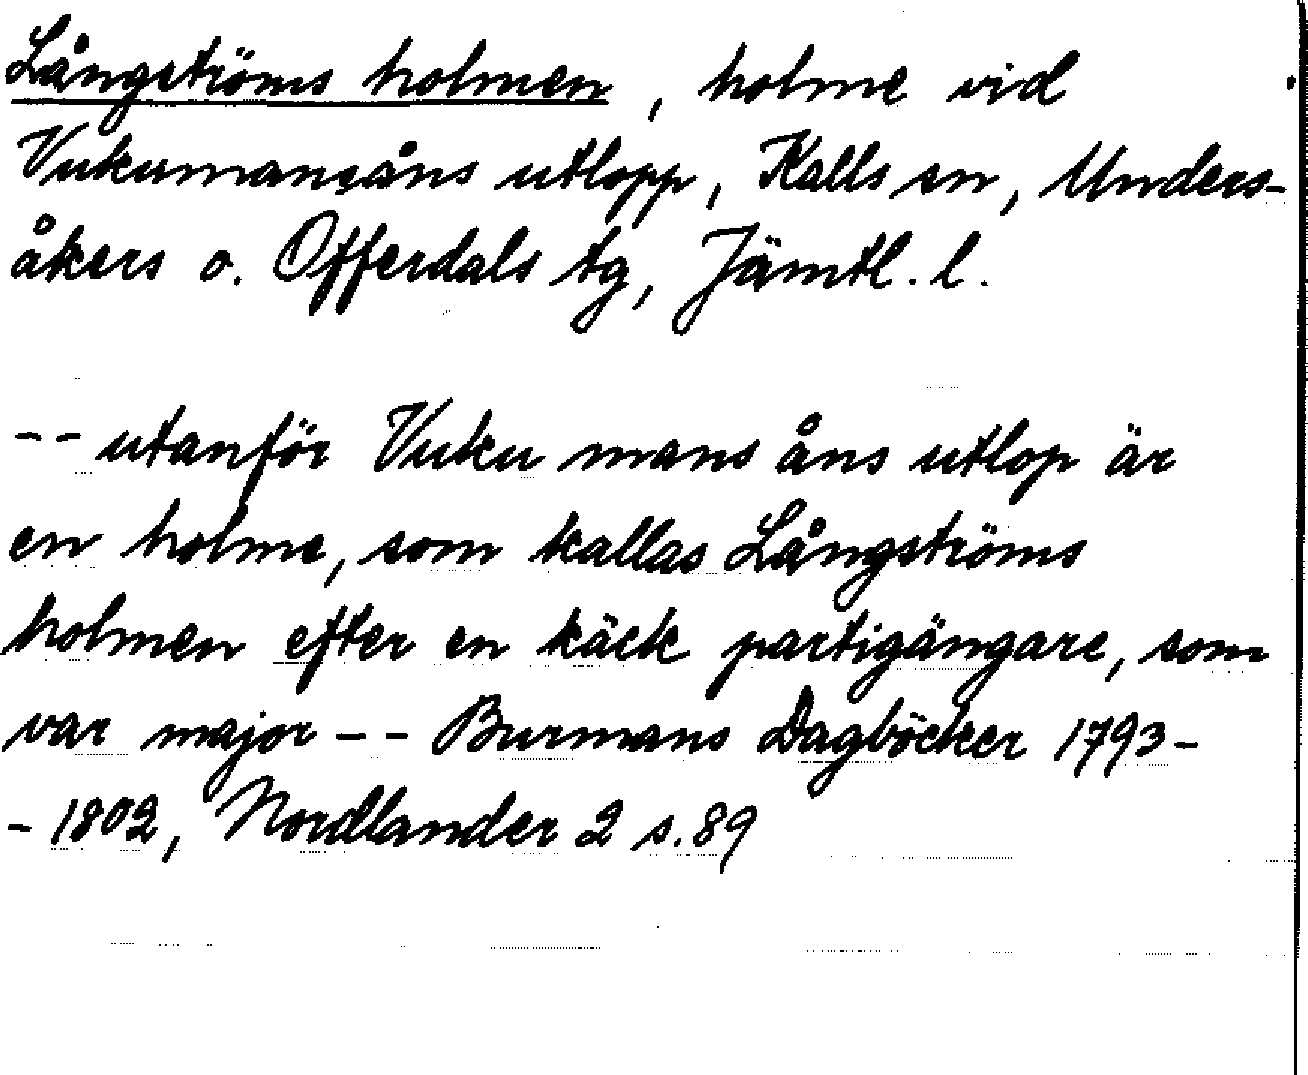 Långströms holmen, holme vid
Vukumansåns utlopp, Kalls sn, Unders-
åkers o. Offerdals tg, Jämtl. l.
-- utanför Vuku mans åns utlop är
en holme, som kallas Långströms
holmen efter en käck partigängare, som
var major -- Burmans Dagböcker 1793-
- 1802, Nordlander 2 s. 89